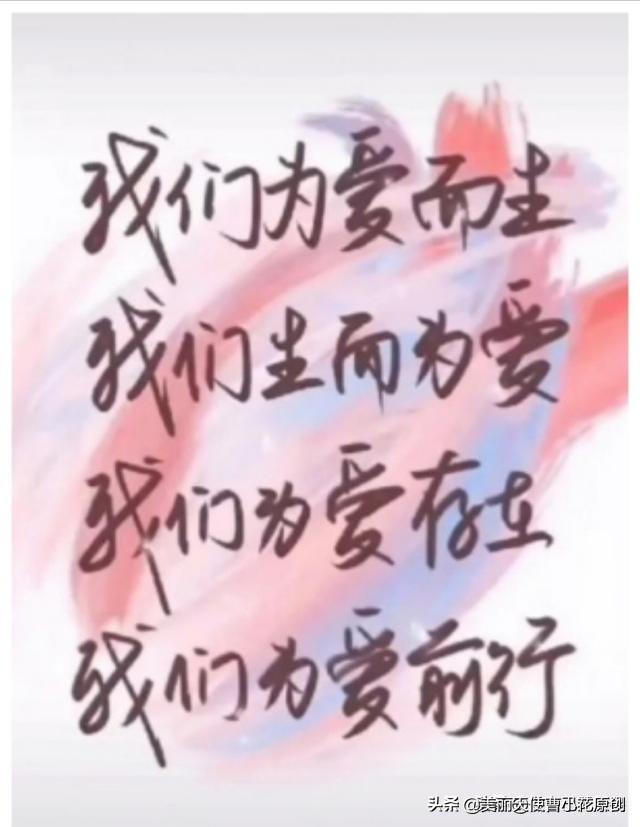 我们为爱而生
我们生而为爱
我们为爱存在
我们为爱前行
头条 @美丽天使曹小花原创